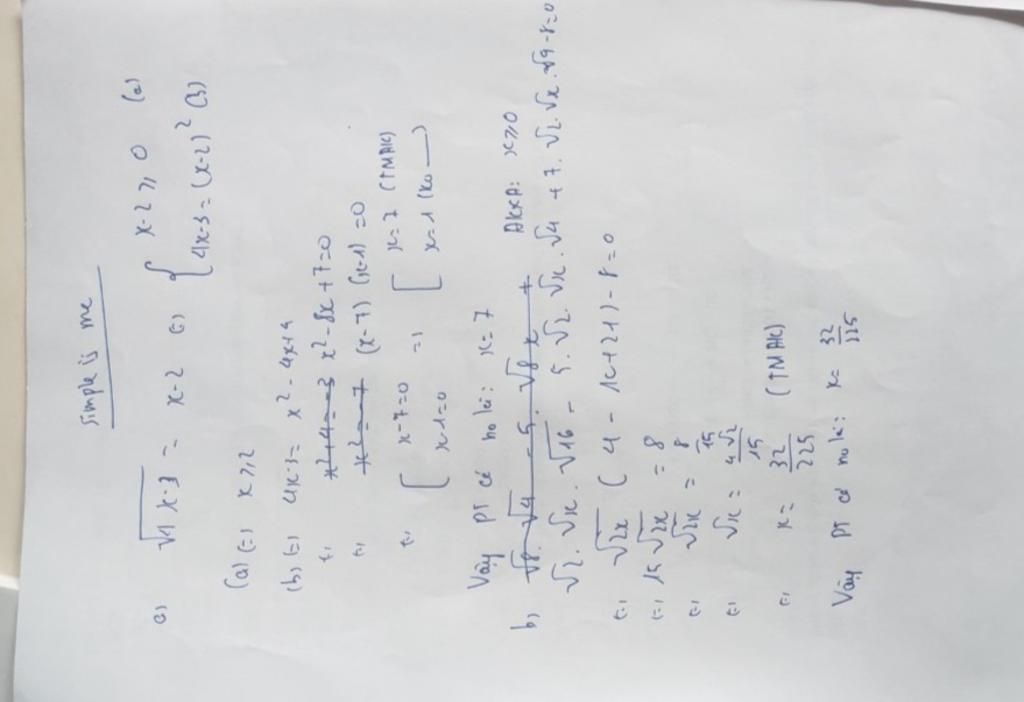 Simple is me
a) √4x-3 = x-2 (=) { x-2 ≥ 0 (a)
{ 4x-3 = (x-2)² (b)
(a) (=) x ≥ 2
(b) (=) 4x-3 = x² - 4x+4
(=) x² - 8x + 7 = 0
(=) (x-7) (x-1) = 0
(=) [ x-7=0 (=) [ x=7 (TMĐK)
[ x-1=0 [ x=1 (Ko —)
Vậy PT có no là: x=7
b) ĐKXĐ: x ≥ 0
√2. √x. √16 - 5. √2. √x. √4 + 7. √2. √x. √9 - 8=0
(=) √2x ( 4 - 10 + 21) - 8 = 0
(=) 15 √2x = 8
(=) √2x = 8/15
(=) √x = 4√2/15
(=) x = 32/225 (TMĐK)
Vậy PT có no là: x = 32/225